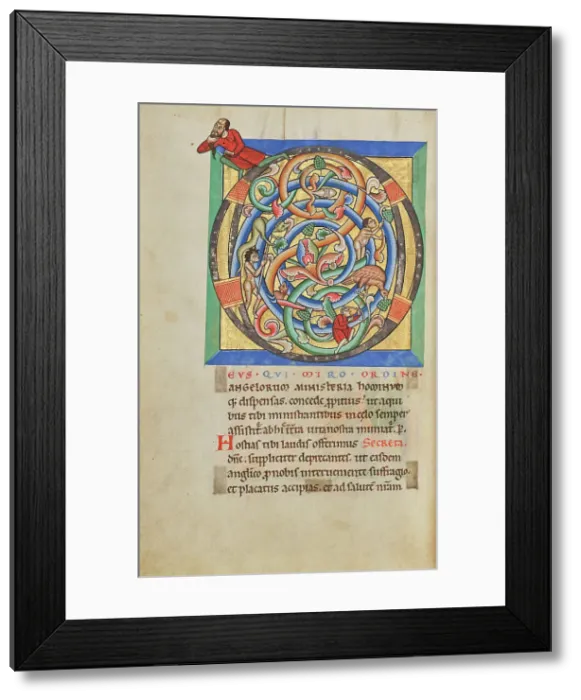 D
EVS · QVI · MIRO · ORDINE ·
ANGELORUM MINISTERIA HOMINUM
q; dispensas. concede ꝓpitius ut a qui
bus tibi ministrantibus in celo semper
assistit᷑ ab hi in t͛ra uita nostra muniat᷑. P.
Hostias tibi laudis offerimus Secreta.
dñe. suppliciter deprecantes. ut easdem
anglico ꝓ nobis interueniente suffragio
et placatus accipias. et ad salutẽ nr̃am